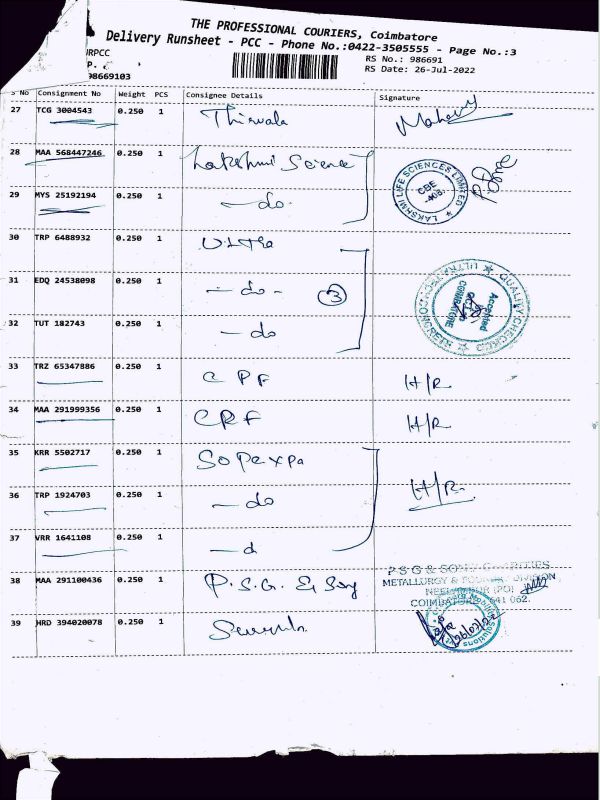 THE PROFESSIONAL COURIERS, Coimbatore
Delivery Runsheet - PCC - Phone No.:0422-3505555 - Page No.:3
URPCC
RS No.: 986691
P.
RS Date: 26-Jul-2022
98669103
S No Consignment No Weight PCS Consignee Details Signature
27 TCG 3004543 0.250 1 Thirwala
28 MAA 568447246 0.250 1 Lakshmi Science
LAKSHMI LIFE SCIENCES LIMITED
CBE
29 MYS 25192194 0.250 1 -do-
30 TRP 6488932 0.250 1 Ultra
31 EDQ 24538098 0.250 1 -do- 3
QUALITY CHECKED
Accepted
COIMBATORE
32 TUT 182743 0.250 1 -do
33 TRZ 65347886 0.250 1 CPF H/R
34 MAA 291999356 0.250 1 CRF H/R
35 KRR 5502717 0.250 1 Sopexpa
36 TRP 1924703 0.250 1 -do H/R
37 VRR 1641108 0.250 1 -d
38 MAA 291100436 0.250 1 P.S.G. & Son
P S G & SONS CHARITIES
METALLURGY & FOUNDRY DIVISION
NEELAMBUR (PO)
COIMBATORE - 641 062.
39 HRD 394020078 0.250 1
Mobility Solutions